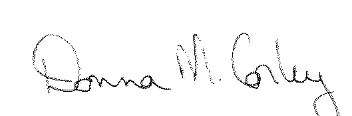 Donna M. Corley